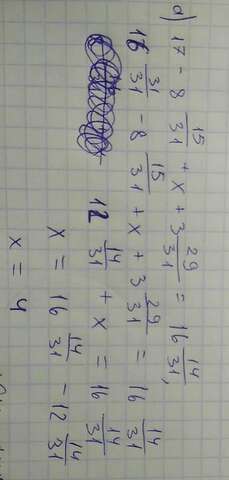 a) 17 - 8 15/31 + x + 3 29/31 = 16 14/31,
16 31/31 - 8 15/31 + x + 3 29/31 = 16 14/31
12 14/31 + x = 16 14/31
x = 16 14/31 - 12 14/31
x = 4